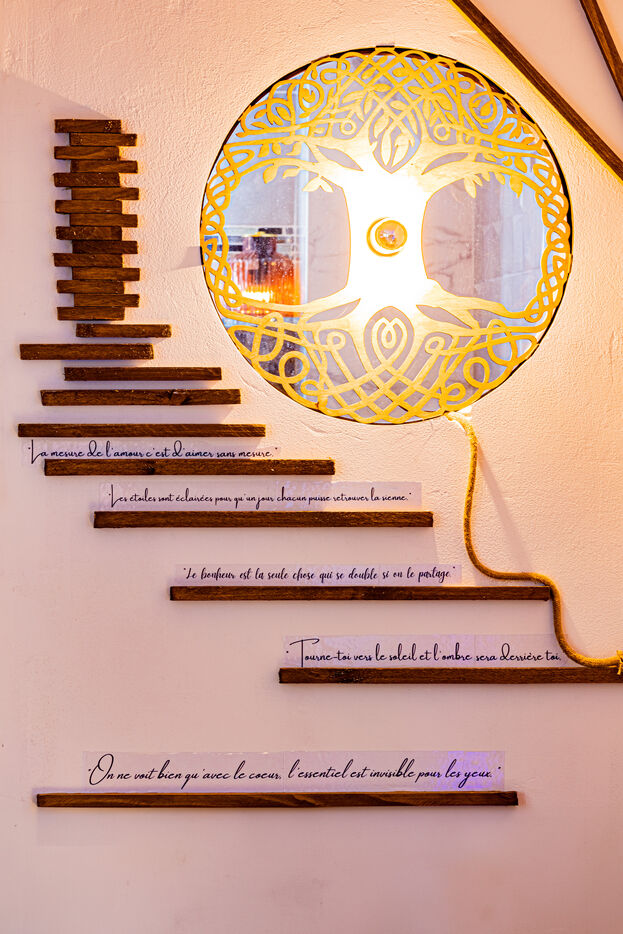 "La mesure de l'amour c'est d'aimer sans mesure."
"Les étoiles sont éclairées pour qu'un jour chacun puisse retrouver la sienne."
"Le bonheur est la seule chose qui se double si on le partage."
"Tourne-toi vers le soleil et l'ombre sera derrière toi.
"On ne voit bien qu'avec le coeur, l'essentiel est invisible pour les yeux."